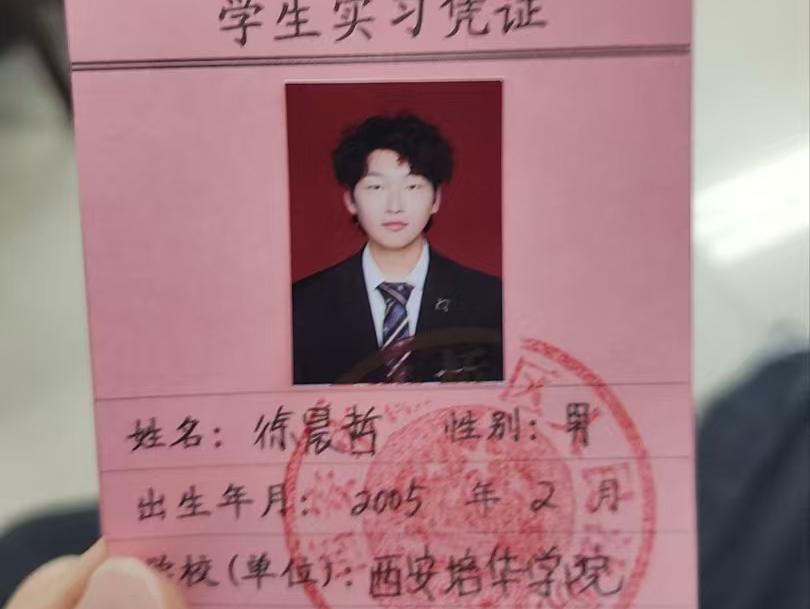 学生实习凭证
姓名：徐晨哲 性别：男
出生年月：2005 年 2 月
院校(单位)：西安培华学院